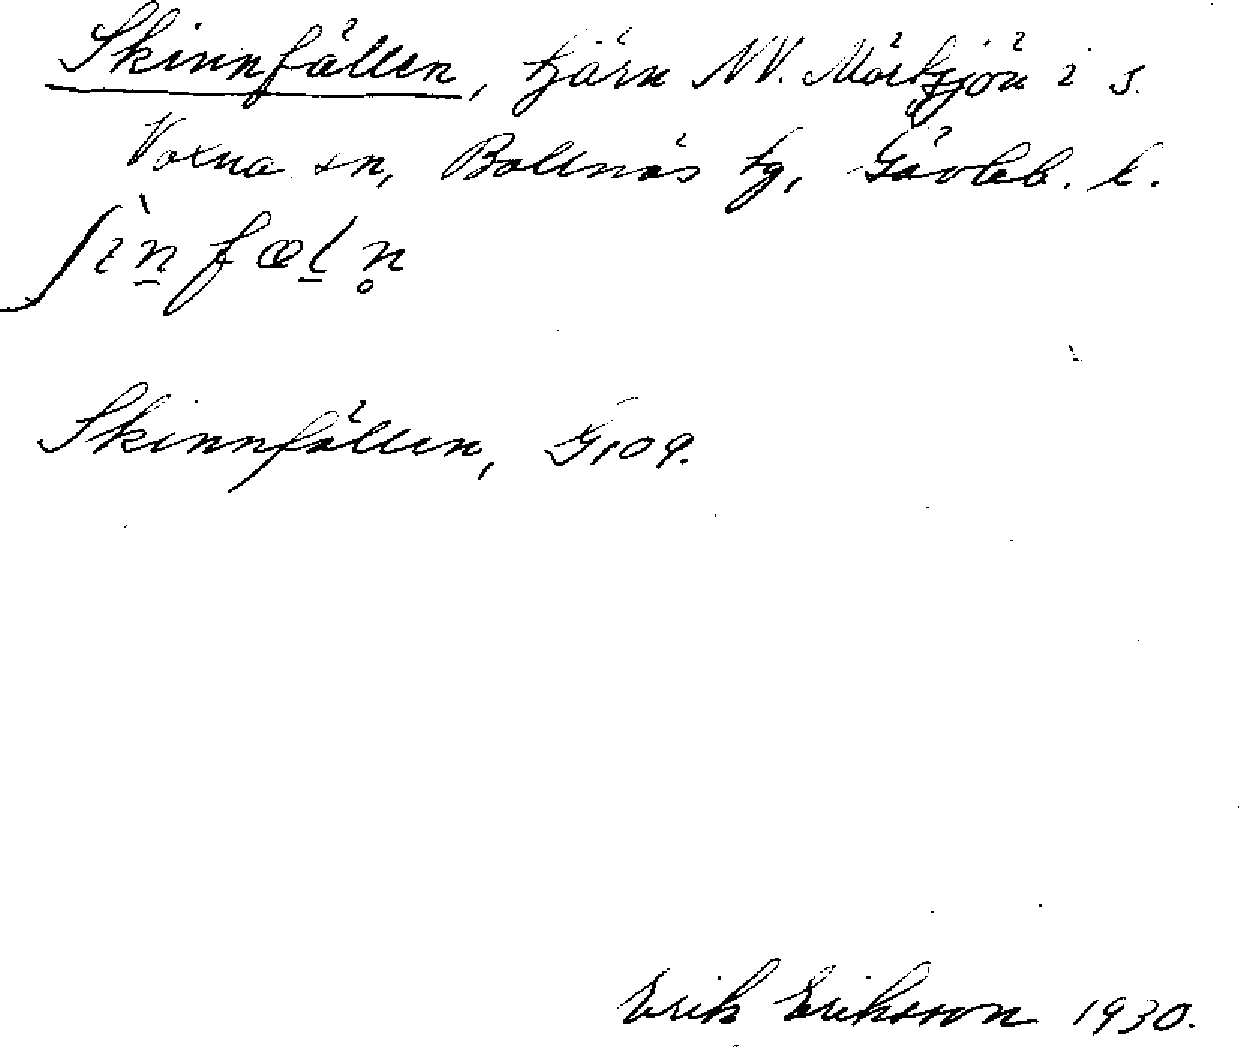 Skinnfällen, tjärn NV. Mörksjön i s.
Voxna sn, Bollnäs tg, Gävleb. l.
ʃìn̲fæl̲n̥
Skinnfällen, G109.
Erik Eriksson 1930.